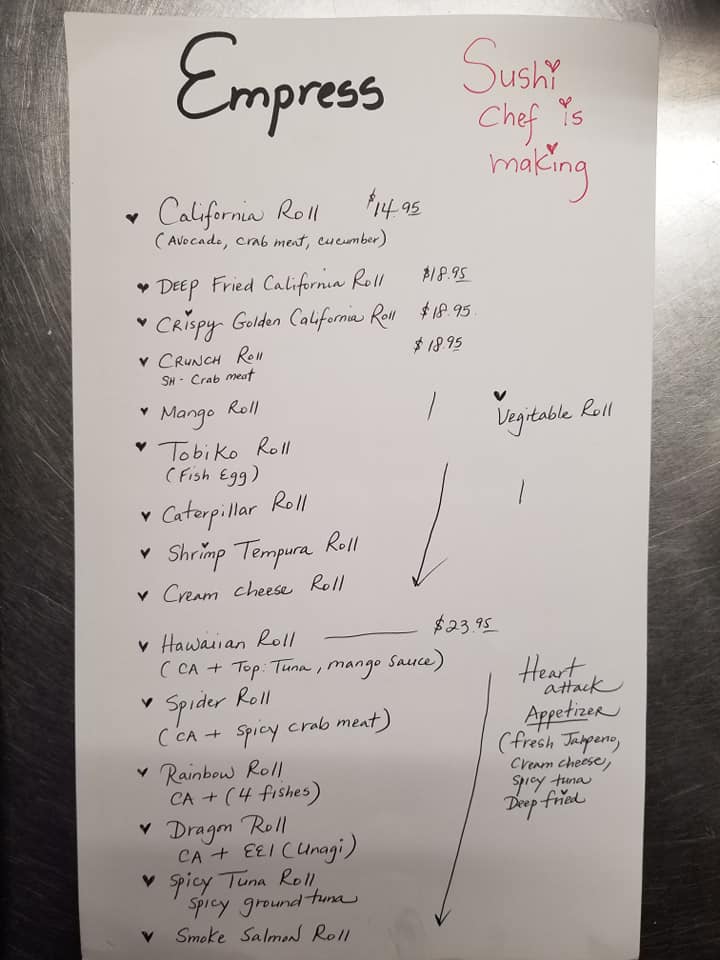 Empress
Sushi
Chef is
making
California Roll $14.95
(Avocado, crab meat, cucumber)
DEEP Fried California Roll $18.95
CRispy Golden California Roll $18.95
CRUNCH Roll $18.95
SH - Crab meat
Mango Roll
Vegitable Roll
Tobiko Roll
(Fish Egg)
Caterpillar Roll
Shrimp Tempura Roll
Cream cheese Roll
Hawaiian Roll $23.95
(CA + Top: Tuna, mango sauce)
Spider Roll
(CA + spicy crab meat)
Rainbow Roll
CA + (4 fishes)
Dragon Roll
CA + EEl (Unagi)
Spicy Tuna Roll
Spicy ground tuna
Smoke Salmon Roll
Heart
attack
Appetizer
(fresh Jalpeno,
cream cheese,
spicy tuna
Deep fried